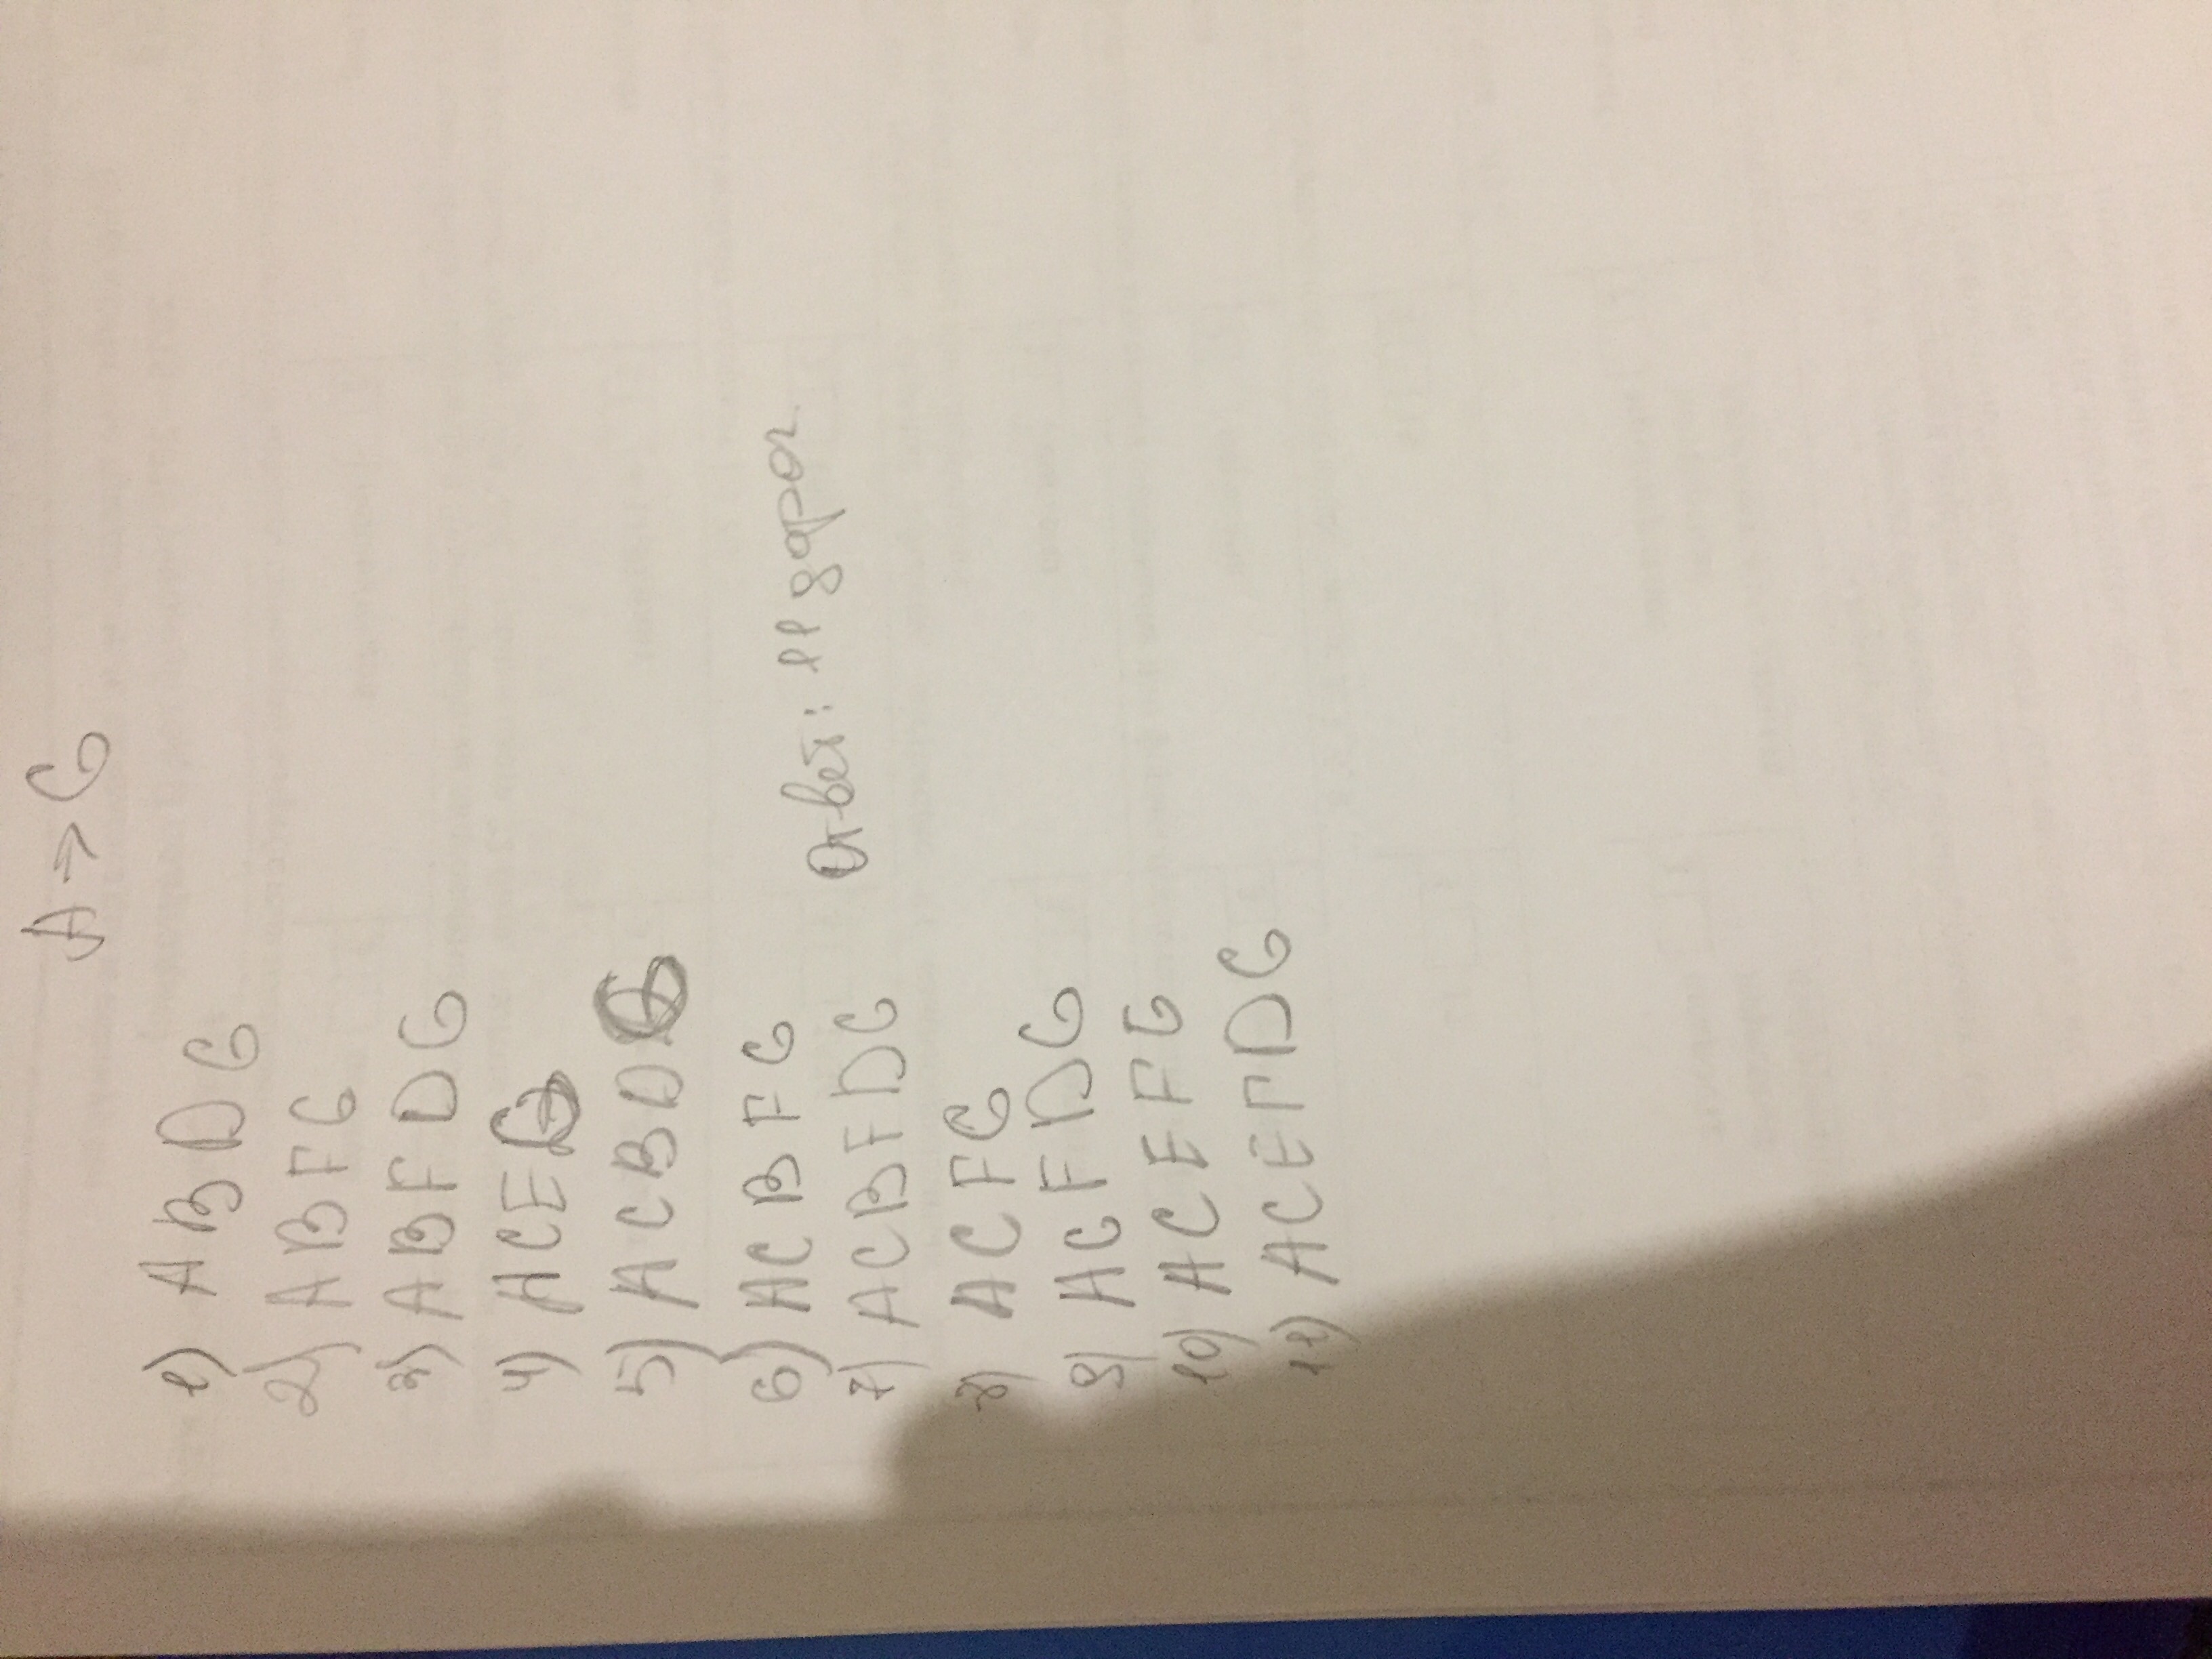 A → G
1) A B D G
2) A B F G
3) A B F D G
4) A C E G
5) A C B D G
6) A C B F G
7) A C B F D G
8) A C F G
9) A C F D G
10) A C E F G
11) A C E F D G
Ответ: 11 дорог.